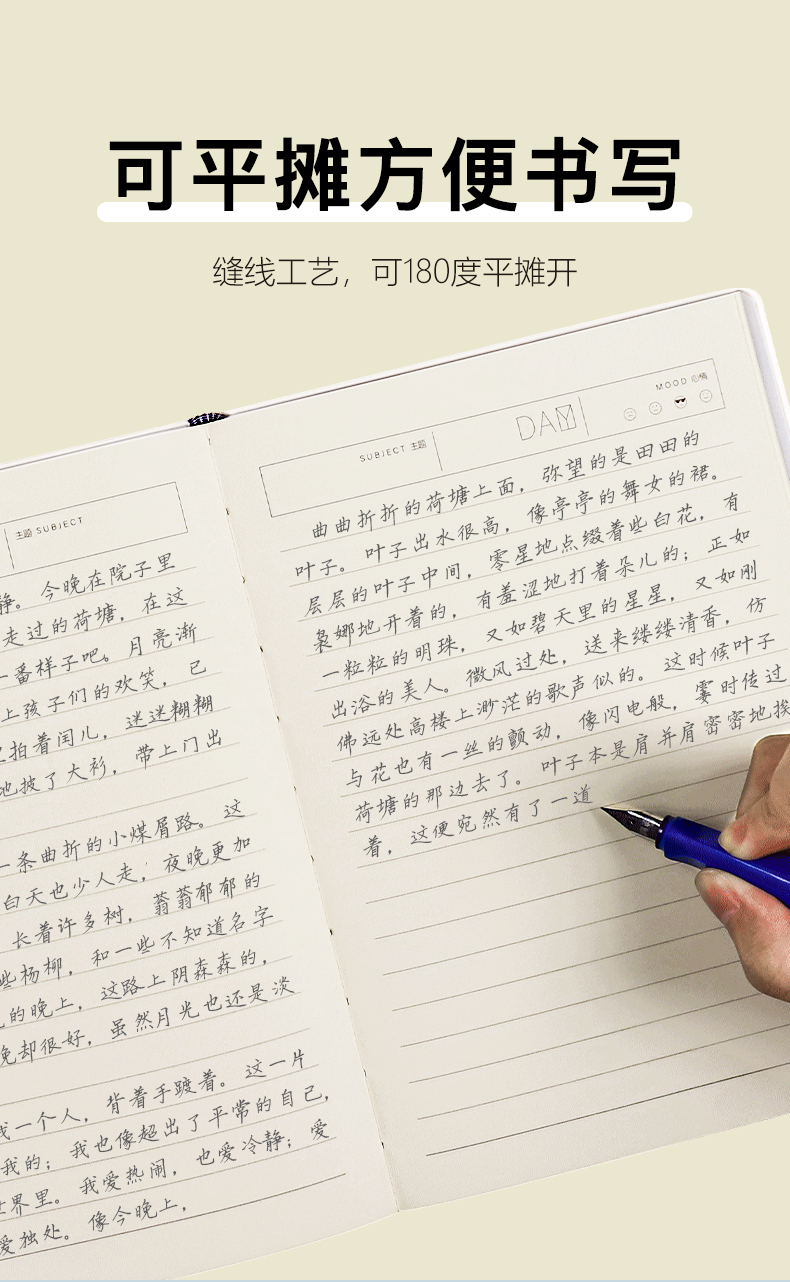 可平摊方便书写
缝线工艺，可180度平摊开
主题 SUBJECT
静。今晚在院子里
走过的荷塘，在这
一番样子吧。月亮渐
上孩子们的欢笑，已
拍着闰儿，迷迷糊糊
地披了大衫，带上门出
一条曲折的小煤屑路。这
白天也少人走，夜晚更加
长着许多树，蓊蓊郁郁的
些杨柳，和一些不知道名字
的晚上，这路上阴森森的，
晚却很好，虽然月光也还是淡
我一个人，背着手踱着。这一片
我的；我也像超出了平常的自己，
世界里。我爱热闹，也爱冷静；爱
爱独处。像今晚上，
SUBJECT 主题
DAY
MOOD 心情
曲曲折折的荷塘上面，弥望的是田田的
叶子。叶子出水很高，像亭亭的舞女的裙。
层层的叶子中间，零星地点缀着些白花，有
袅娜地开着的，有羞涩地打着朵儿的；正如
一粒粒的明珠，又如碧天里的星星，又如刚
出浴的美人。微风过处，送来缕缕清香，仿
佛远处高楼上渺茫的歌声似的。这时候叶子
与花也有一丝的颤动，像闪电般，霎时传过
荷塘的那边去了。叶子本是肩并肩密密地挨
着，这便宛然有了一道